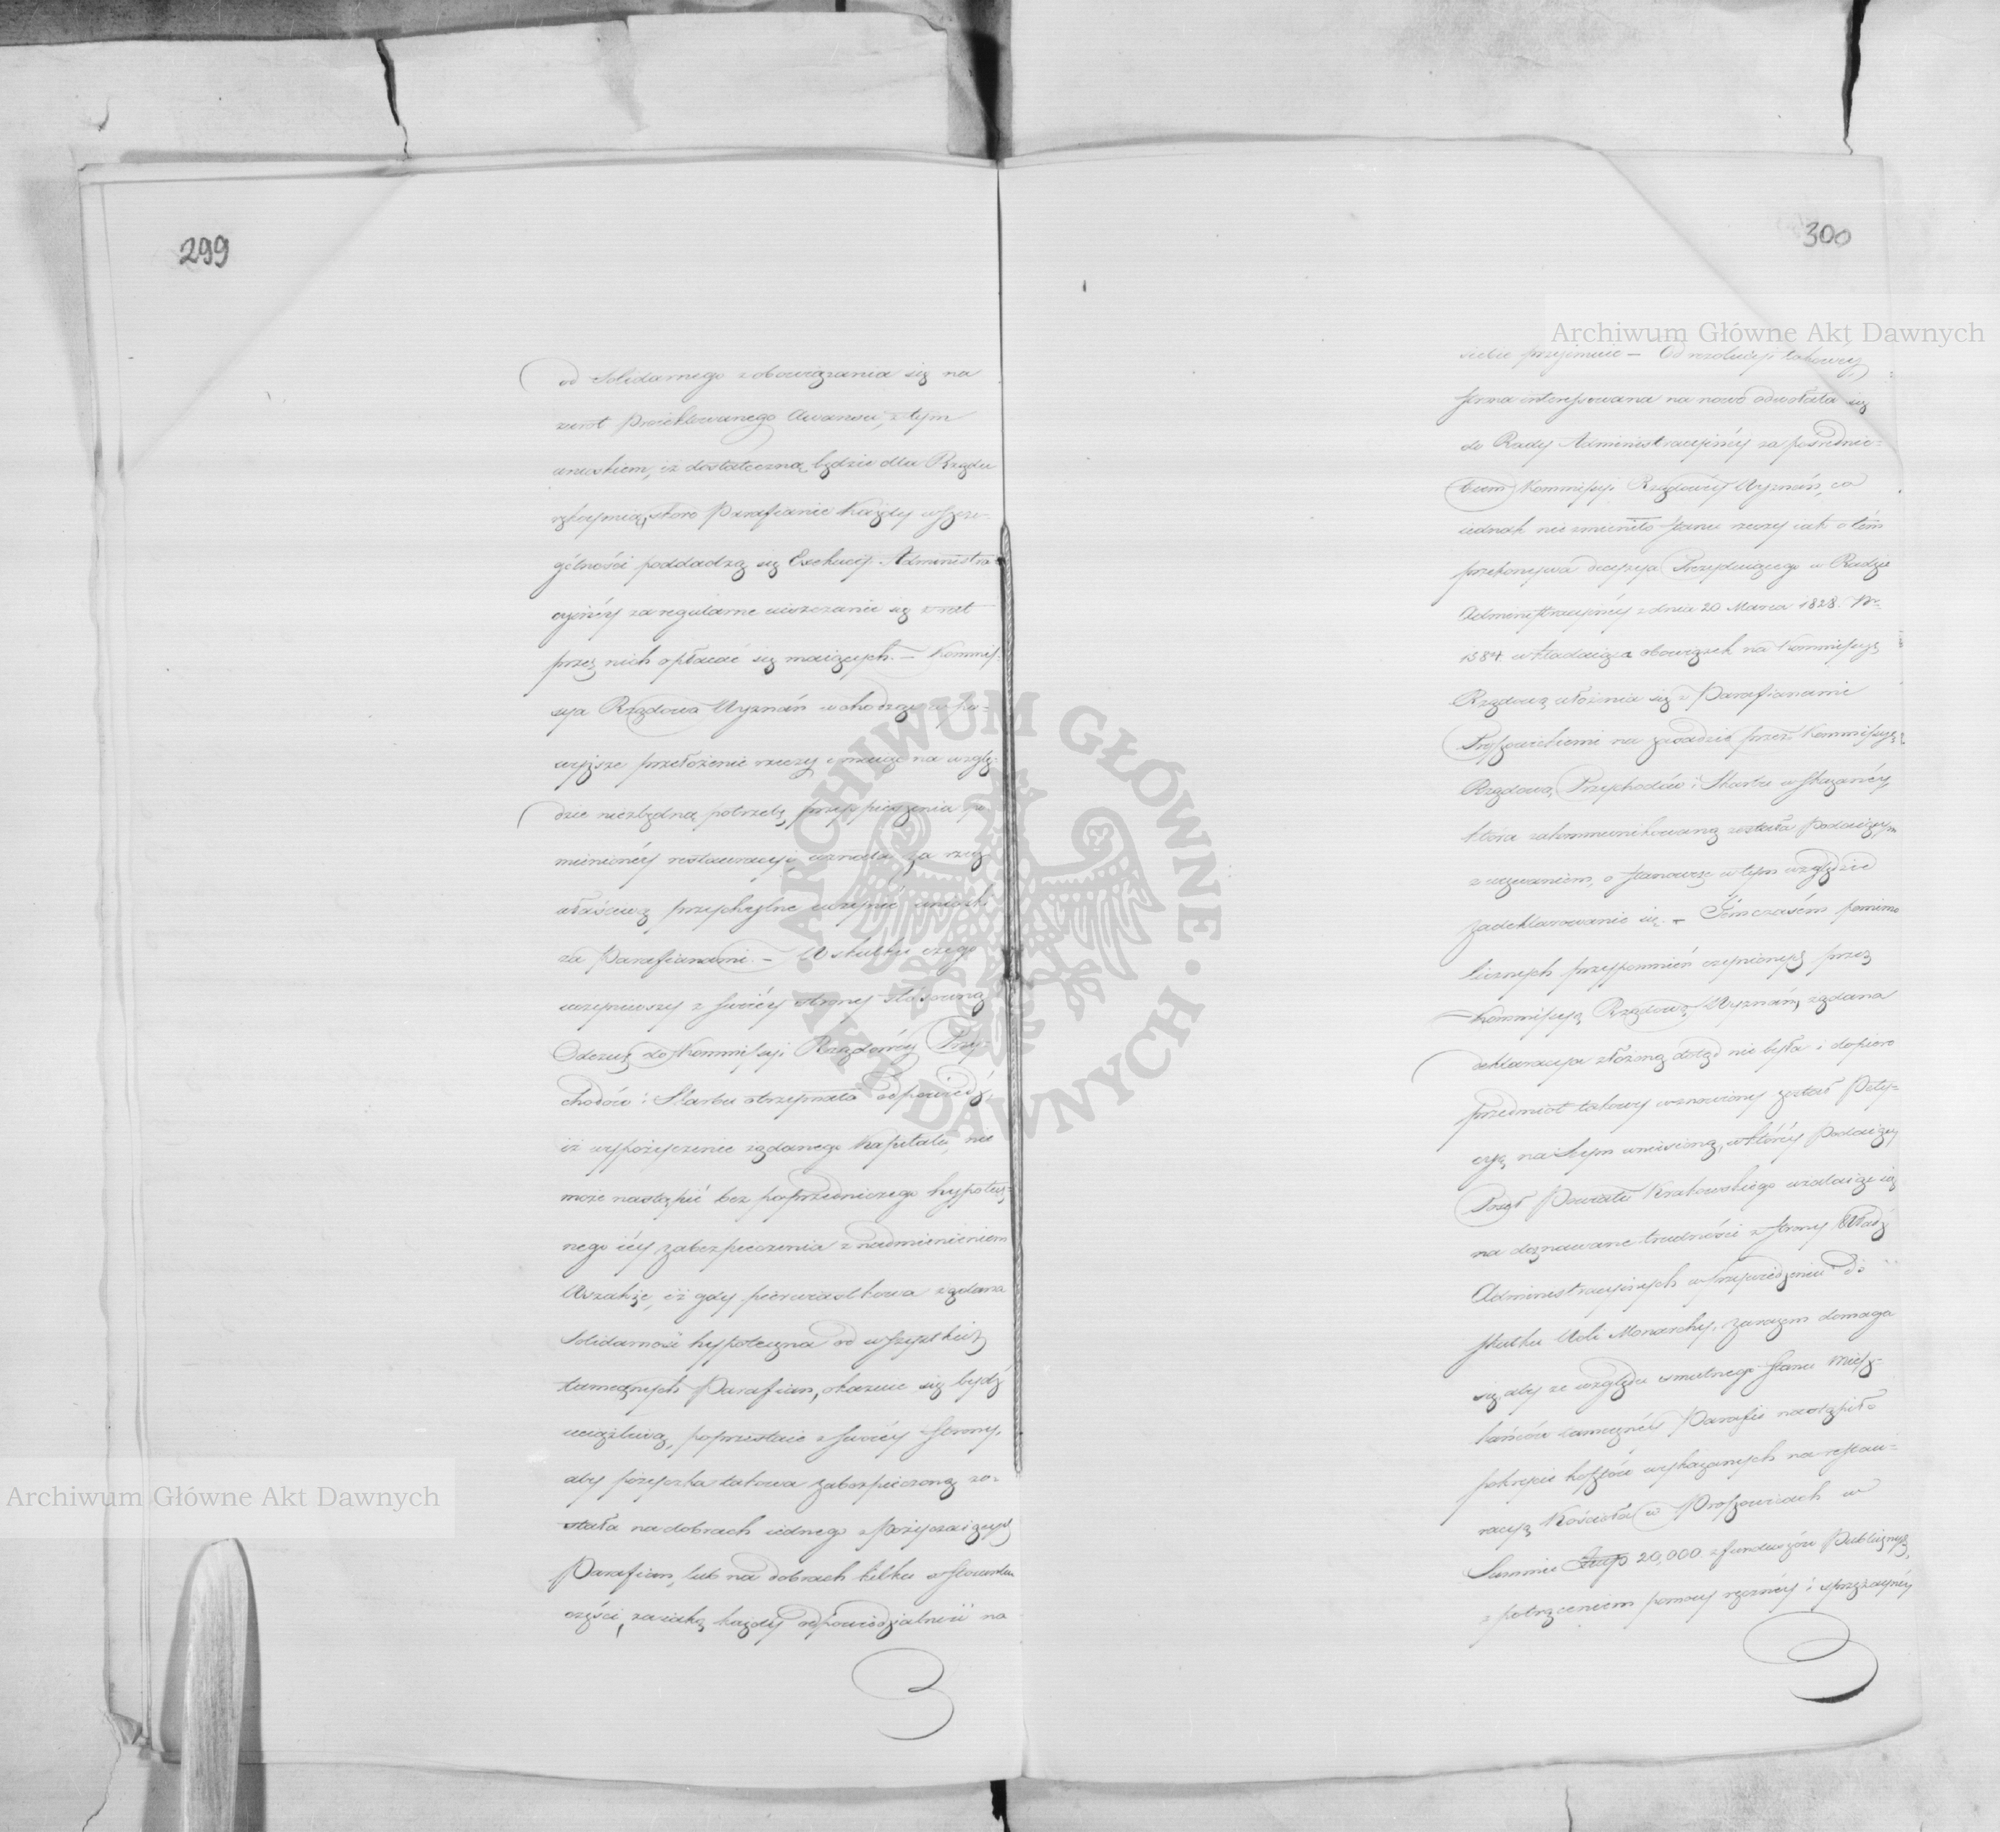 299
od Solidarnego zobowiązania się na
zwrot Proiektowanego Awansu, z tym
wnioskiem, iż dostateczną będzie dla Rządu
rękoymią, skoro Parafianie Każdy w szcze-
gólności poddadzą się Exekucyi Administra
cyinéy za regularne uiszczanie się z rat
przez nich opłacać się maiących. — Kommis-
sya Rządowa Wyznań wchodząc w po-
wyższe przełożenie rzeczy i maiąc na wzglę-
dzie niezbędną potrzebę, przyspieszenia po
mienionéy restauracyi uznała za rzecz
właściwą przychylne uczynić wnioski
za Parafianami. — W skutku czego
uczyniwszy z swoiéy strony stosowną
Odezwę do Kommissyi Rządowéy Przy-
chodów i Skarbu otrzymała odpowiedź,
iż wypożyczenie żądanego Kapitału, nie
może nastąpić bez poprzedniczego hypotecz-
nego iéy zabezpieczenia z nadmienieniem
Wszakże, iż gdy pierwiastkowa żądana
Solidarność hypoteczna od wszystkich
tamecznych Parafian, okazuie się bydź
uciążliwą, poprzestaie z swoiéy strony,
aby pożyczka takowa zabezpieczoną zo-
stała na dobrach iednego z Pożyczaiących
Parafian, lub na dobrach kilku w stosunku
części, za iaką każdy odpowiedzialność na
300
siebie przyimuie — Od rezolucyi takowéy,
strona interessowana na nowo odwołała się
do Rady Administracyinéy za pośrednic-
twem Kommissyi Rządowéy Wyznań, co
iednak nie zmieniło stanu rzeczy iak o tém
przekonywa decyzya Prezyduiącego w Radzie
Administracyinéy z dnia 20 Marca 1828. Nr
1584 wkładaiąca obowiązek na Kommissyę
Rządową ułożenia się z Parafianami
Proszowickiemi na zasadzie przez Kommissyę
Rządową Przychodów i Skarbu wskazanéy,
która zakommunikowaną została Podaiącym
z wezwaniem, o stanowcze w tym względzie
zadeklarowanie się. — Tymczasém pomimo
licznych przypomnień czynionych przez
Kommissyą Rządową Wyznań, żądana
deklaracya złożoną dotąd nie była i dopiero
przedmiot takowy wznowiony został Pety-
cyą na Seym wniesioną, w któréy Podaiący
Poseł Powiatu Krakowskiego użalaiąc się
na doznawane trudności z strony Władz
Administracyinych w przywiedzeniu do
skutku Woli Monarchy, zarazem domaga
się, aby ze względu smutnego stanu miesz-
kańców tamecznéy Parafii nastąpiło
pokrycie kosztów wykazanych na restau-
racyą Kościoła w Proszowicach w
Summie 20,000 z funduszów Publicznych,
z potrąceniem pomocy ręcznéy i sprzężaynéy
Archiwum Główne Akt Dawnych
Archiwum Główne Akt Dawnych
ARCHIWUM GŁÓWNE · AKT DAWNYCH ·